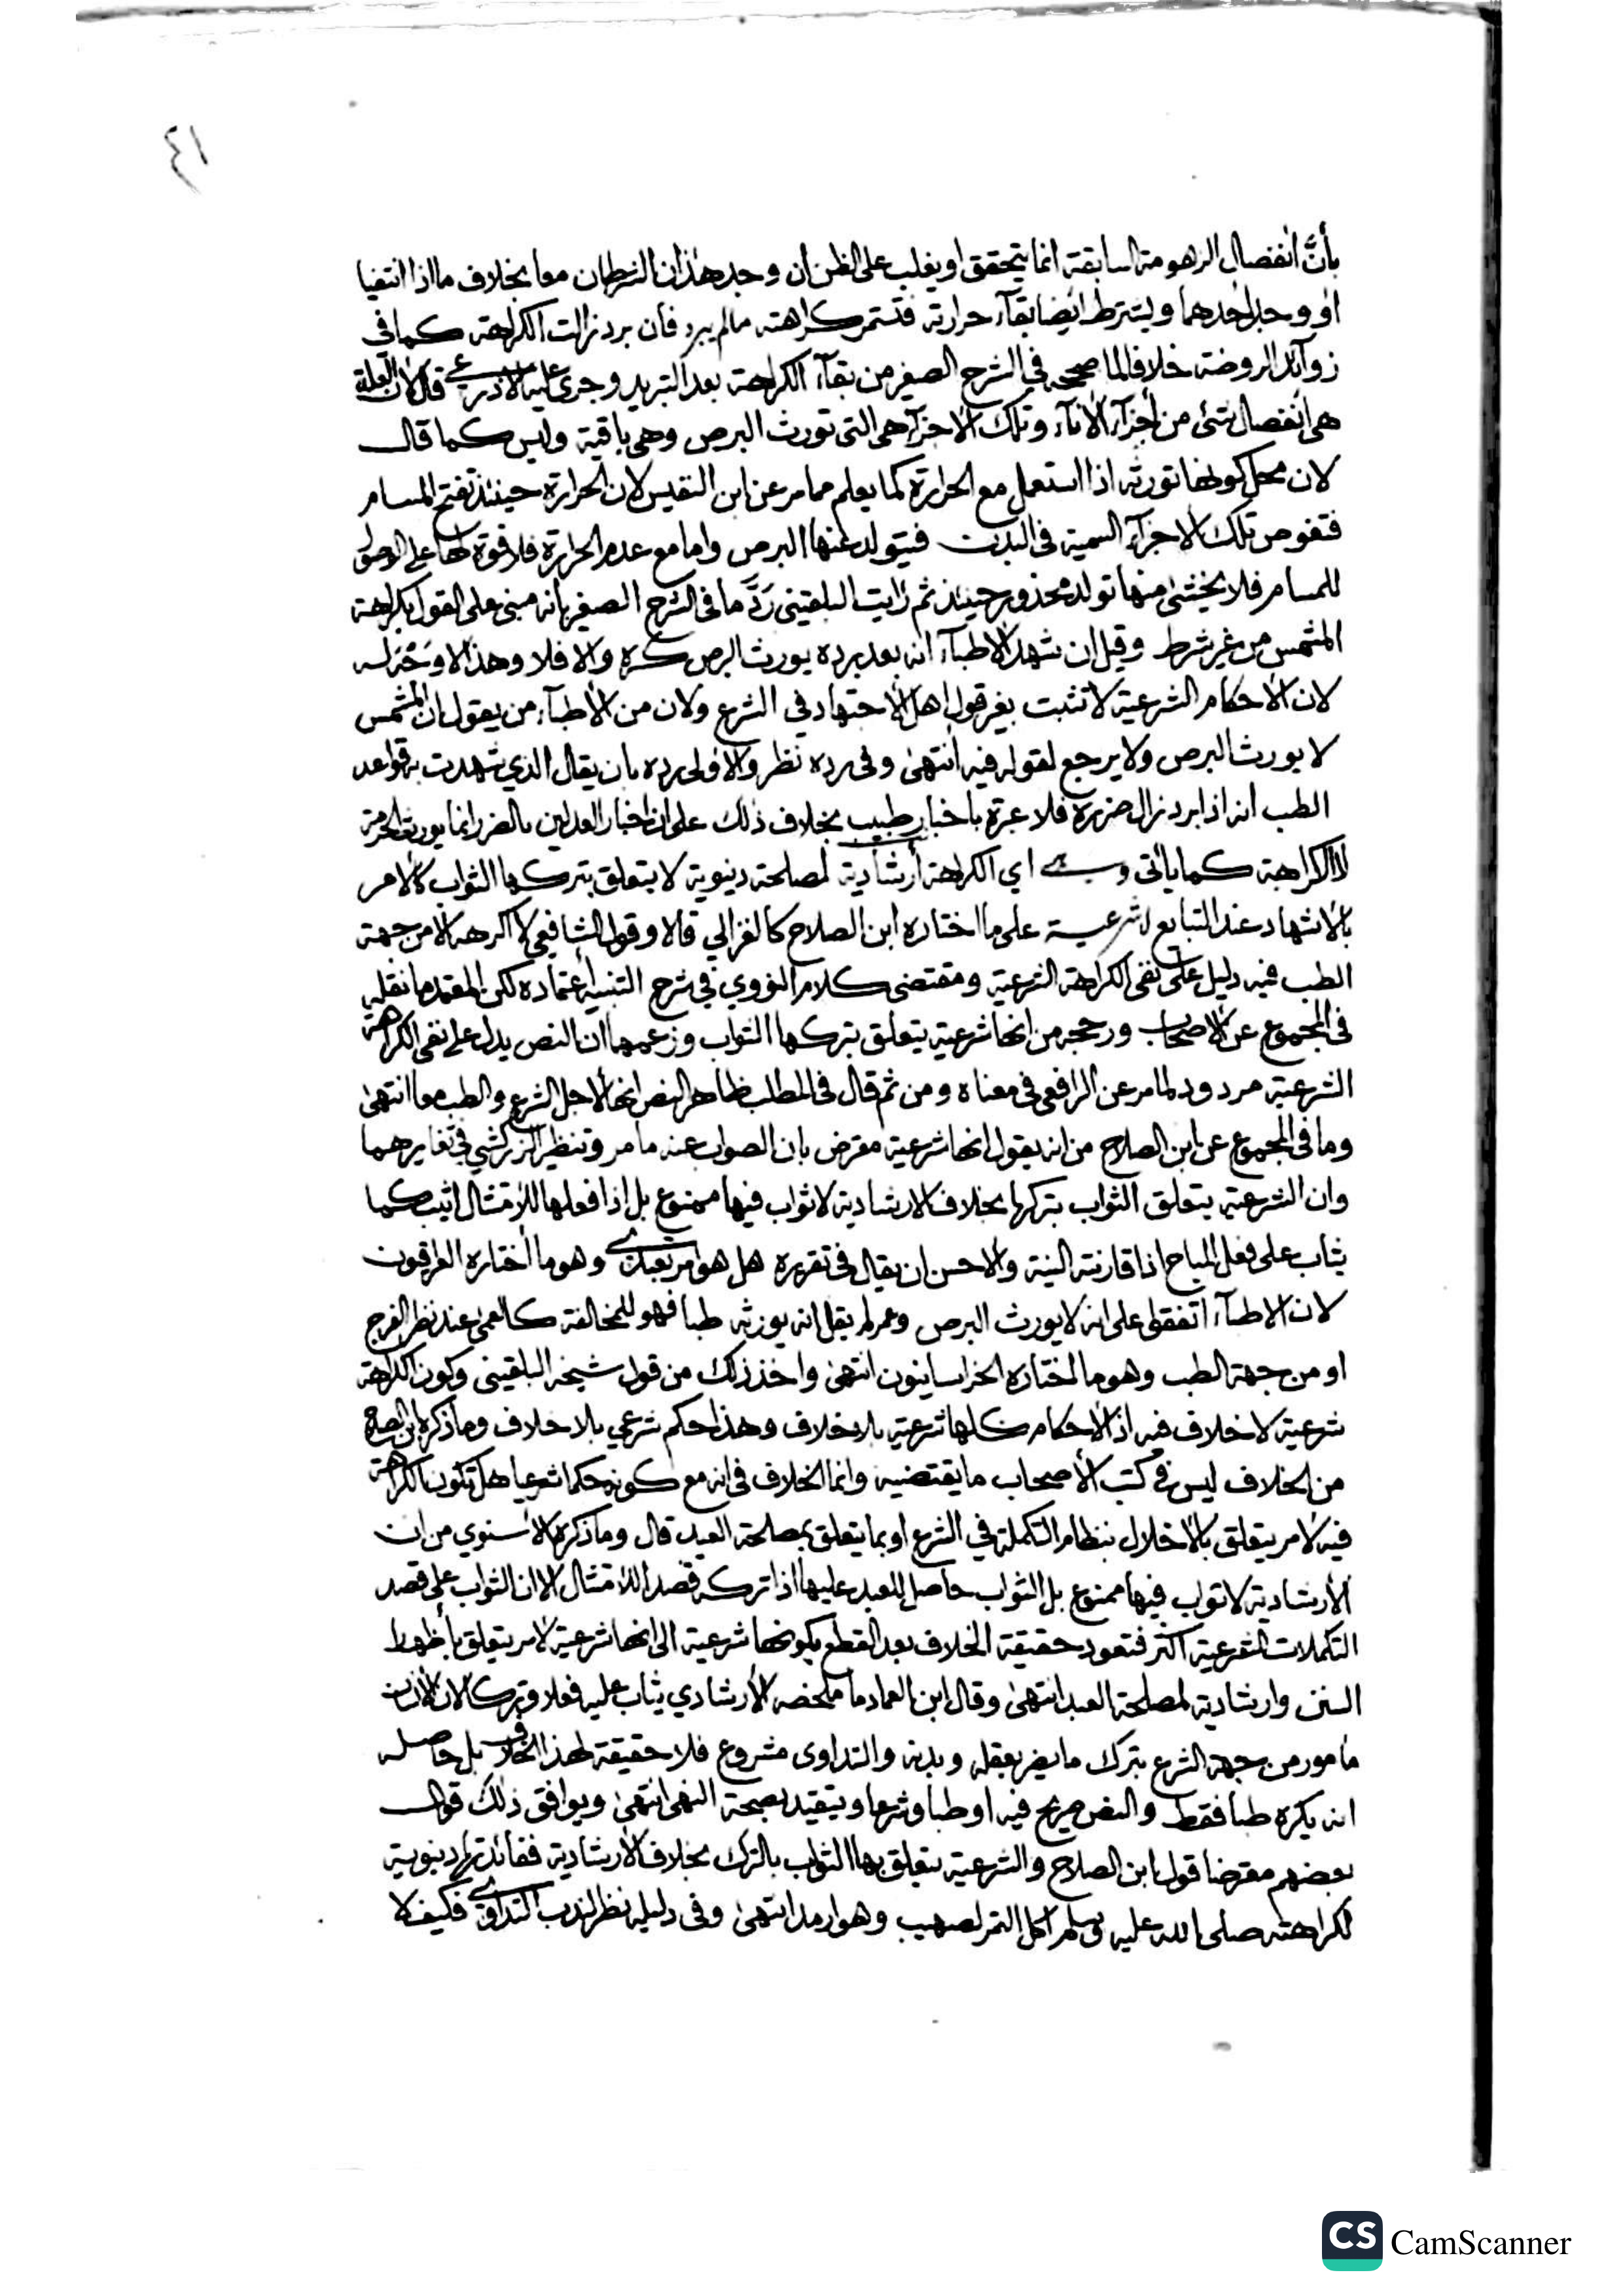 ٤١
بأنَّ انفصال الزهومة السابقة انما يتحقق او يغلب على الظن ان وجد هذان الشرطان معا بخلاف ما اذا انتفيا
او وجد احدهما ويشترط ايضا بقآء حرارته فتستمر كراهته مالم يبرد فان برد زالت الكراهة كما في
زوآئد الروضة خلافا لما صححه في الشرح الصغير من بقآء الكراهة بعد التبريد وجرى عليه الاذرعي قال لان العلة
هي انفصال شئ من أجزآء الانآء وتلك الاجزآء هي التي تورث البرص وهي باقية وليس كما قال
لان محل كونها تورثه اذا استعمل مع الحرارة كما يعلم مما مر عن ابن النفيس لان الحرارة حينئذ تفتح المسام
فتغوص تلك الاجزآء السمية في البدن فيتولد عنها البرص واما مع عدم الحرارة فلا قوة لها على الوصول
للمسام فلا يخشى منها تولد محذور حينئذ ثم رايت البلقيني رَدَّ ما في الشرح الصغير بانه مبني على القول بكراهة
المشمس من غير شرط وقيل ان شهد الاطبآء انه بعد برده يورث البرص كره والا فلا وهذا لا وجه له
لان الاحكام الشرعية لا تثبت بغير قول اهل الاجتهاد في الشرع ولان من الاطبآء من يقول ان المشمس
لا يورث البرص ولا يرجع لقوله فيه انتهى وفي رده نظر والاولى رده بان يقال الذي شهدت به قواعد
الطب انه اذا برد زال ضرره فلا عبرة باخبار طبيب بخلاف ذلك على ان اخبار العدلين بالضرر انما يورث الحرمة
لا الكراهة كما ياتي وهي اي الكراهة أرشادية لمصلحة دنيوية لا يتعلق بتركها الثواب كالامر
بالاشهاد عند التبايع لا شرعية على ما اختاره ابن الصلاح كالغزالي قالا وقول الشافعي لا اكرهه الا من جهة
الطب فيه دليل على نفي الكراهة الشرعية ومقتضى كلام النووي في شرح التنبيه أعتماده لكن المعتمد ما نقله
في المجموع عن الاصحاب ورجحه من انها شرعية يتعلق بتركها الثواب وزعمهما ان النص يدل على نفي الكراهة
الشرعية مردود لما مر عن الرافعي في معناه ومن ثم قال في المطلب ظاهر النص انها لاجل الشرع والطب معا انتهى
وما في المجموع عن ابن الصلاح من انه يقول انها شرعية معترض بان الصواب عنه ما مر وتنظير الزركشي في تغايرهما
وان الشرعية يتعلق الثواب بتركها بخلاف الارشادية لا ثواب فيها ممنوع بل اذا فعلها للامتثال اثيب كما
يثاب على فعل المباح اذا قارنته النية والاحسن ان يقال في تقريره هل هو امر تعبدي وهو ما أختاره العراقيون
لان الاطبآء اتفقوا على انه لا يورث البرص وعمر لم يقل انه يورثه طبا فهو للمخالفة كالعمى عند نظر الفرج
او من جهة الطب وهو ما اختاره الخراسانيون انتهى واخذ ذلك من قول شيخه البلقيني وكون الكراهة
شرعية لا خلاف فيه اذ الاحكام كلها شرعية بلا خلاف وهذا حكم شرعي بلا خلاف وما ذكره ابن الصلاح
من الخلاف ليس في كتب الأصحاب ما يقتضيه وانما الخلاف في انه مع كونه حكما شرعيا هل تكون الكراهة
فيه لامر يتعلق بالاخلال بنظام التكملة في الشرع او بما يتعلق بمصلحة العبد قال وما ذكره الاسنوي من ان
الأرشادية لا ثواب فيها ممنوع بل الثواب حاصل للعبد عليها اذا تركه قصدا للامتثال الا ان الثواب على قصد
التكملات الشرعية اكثر فتعود حقيقة الخلاف بعد القطع بكونها شرعية الى انها شرعية لامر يتعلق بأظهار
السنن وارشادية لمصلحة العبد انتهى وقال ابن العماد ما ملخصه الأرشادي يثاب عليه فعلا وتركا لان الانسان
مامور من جهة الشرع بترك ما يضر بعقله وبدنه والتداوى مشروع فلا حقيقة لهذا الخلاف بل حاصله
انه يكره طبا فقط والنص صريح فيه او طبا وشرعا ويتقيد بصحة النهي انتهى ويوافق ذلك قول
بعضهم معترضا قول ابن الصلاح والشرعية يتعلق بها الثواب بالترك بخلاف الارشادية ففائدتها دنيوية
لكراهته صلى الله عليه وسلم اكل التمر لصهيب وهو ارمد انتهى وفي دليله نظر لندب التداوي فكيف لا
CS CamScanner